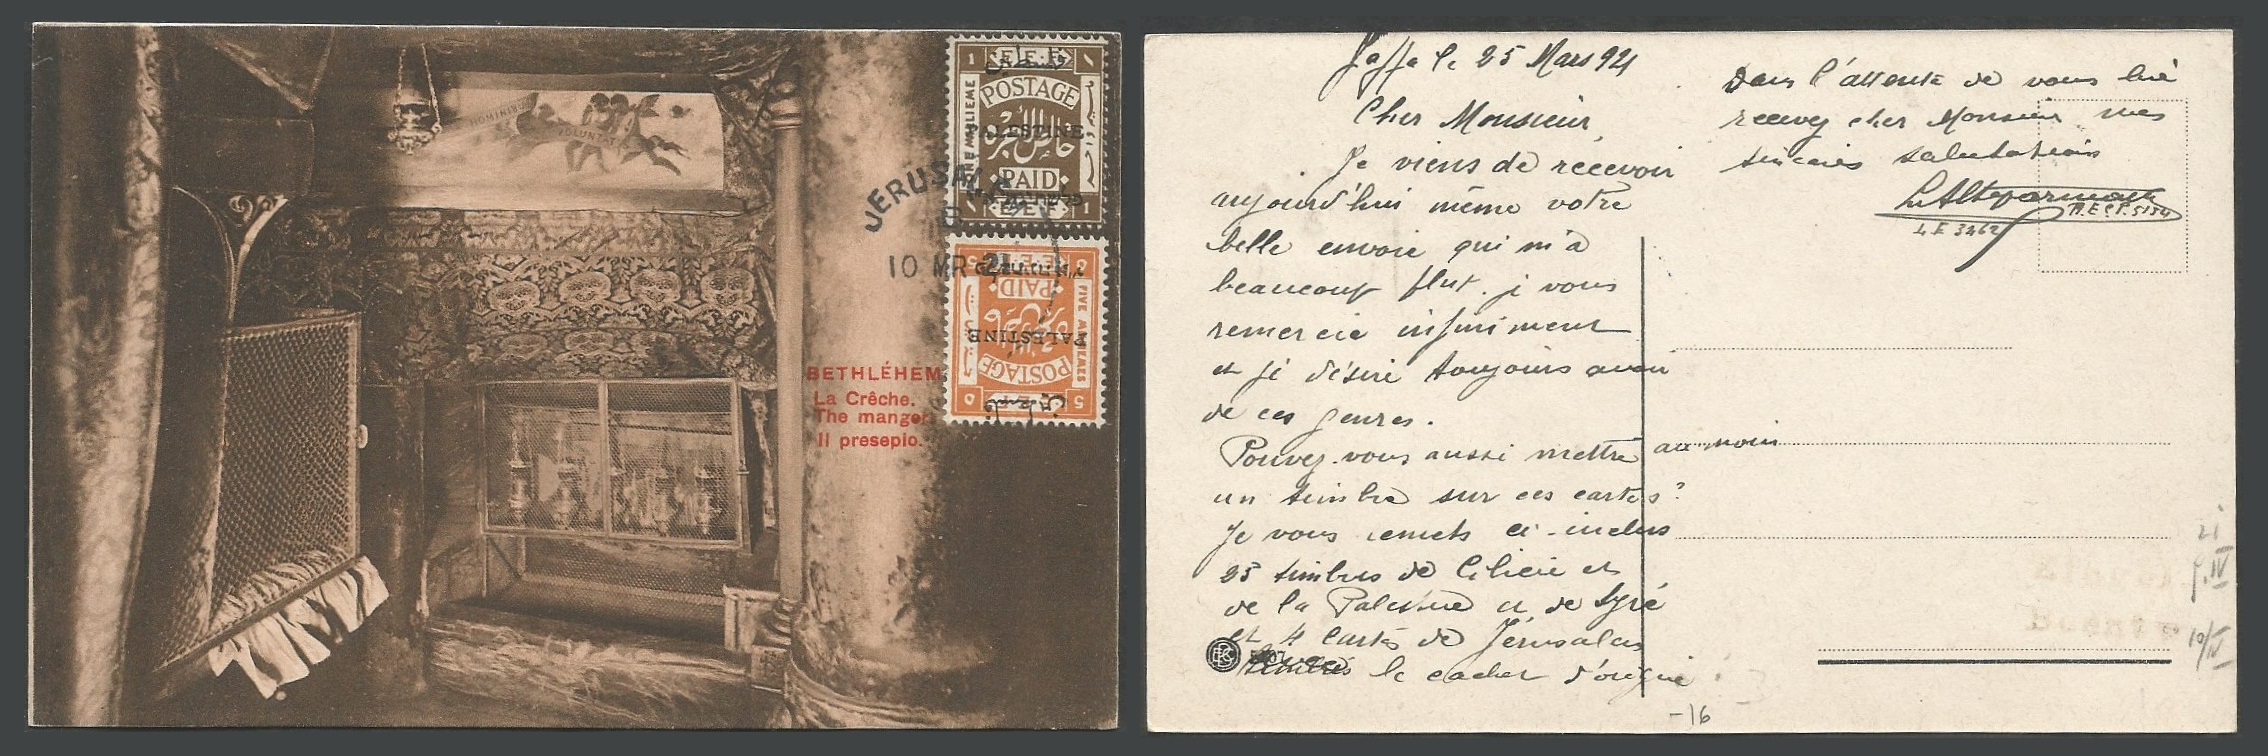 1 E.E.F. ١
POSTAGE
خالص الأجرة
PALESTINE
PAID
E.E.F. 1
ONE MILLIEME
فلسطين
JERUSALEM
10 MR 21
E.E.F.
PAID
PALESTINE
POSTAGE
FIVE MILLIEMES
5
فلسطين
HOMINIBUS
VOLUNTATIS
BETHLÉHEM
La Crêche.
The manger.
Il presepio.
Jaffa le 25 Mars 921
Cher Monsieur,
Je viens de recevoir
aujourd'hui même votre
belle envoie qui m'a
beaucoup plut. je vous
remercie infiniment
et je désire toujours avoir
de ces genres.
Pouvez-vous aussi mettre au moin
un timbre sur ces cartes?
Je vous remets ci-inclus
25 timbres de Cilicie et
de la Palestine et de Syrie
et 4 cartes de Jérusalem
timbrés le cachet d'origine
Dans l'attente de vous lire
recevez cher Monsieur mes
sincères salutations
21
10/IV
-16